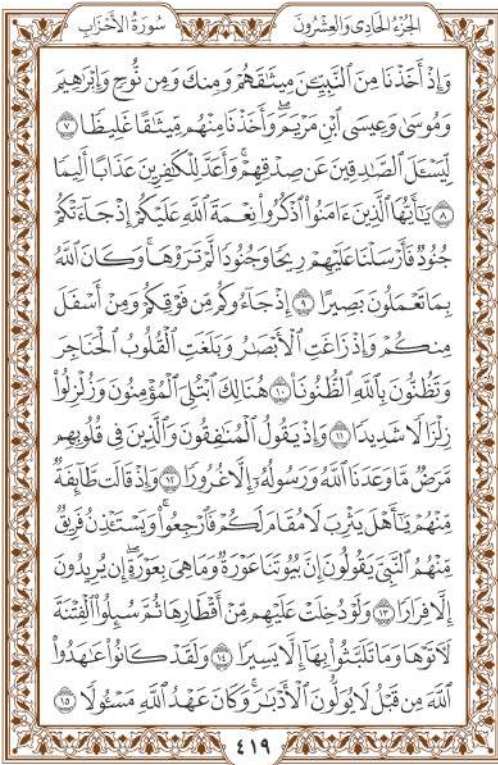 الجُزْءُ الحَادِى وَالعِشْرُونَ سُورَةُ الأَحْزَابِ
وَإِذْ أَخَذْنَا مِنَ ٱلنَّبِيِّـۧنَ مِيثَٰقَهُمْ وَمِنكَ وَمِن نُّوحٍ وَإِبْرَٰهِيمَ
وَمُوسَىٰ وَعِيسَى ٱبْنِ مَرْيَمَۖ وَأَخَذْنَا مِنْهُم مِّيثَٰقًا غَلِيظًا ٧
لِّيَسْـَٔلَ ٱلصَّٰدِقِينَ عَن صِدْقِهِمْۚ وَأَعَدَّ لِلْكَٰفِرِينَ عَذَابًا أَلِيمًا
٨ يَٰٓأَيُّهَا ٱلَّذِينَ ءَامَنُوا۟ ٱذْكُرُوا۟ نِعْمَةَ ٱللَّهِ عَلَيْكُمْ إِذْ جَآءَتْكُمْ
جُنُودٌ فَأَرْسَلْنَا عَلَيْهِمْ رِيحًا وَجُنُودًا لَّمْ تَرَوْهَاۚ وَكَانَ ٱللَّهُ
بِمَا تَعْمَلُونَ بَصِيرًا ٩ إِذْ جَآءُوكُم مِّن فَوْقِكُمْ وَمِنْ أَسْفَلَ
مِنكُمْ وَإِذْ زَاغَتِ ٱلْأَبْصَٰرُ وَبَلَغَتِ ٱلْقُلُوبُ ٱلْحَنَاجِرَ
وَتَظُنُّونَ بِٱللَّهِ ٱلظُّنُونَا۠ ١٠ هُنَالِكَ ٱبْتُلِىَ ٱلْمُؤْمِنُونَ وَزُلْزِلُوا۟
زِلْزَالًا شَدِيدًا ١١ وَإِذْ يَقُولُ ٱلْمُنَٰفِقُونَ وَٱلَّذِينَ فِى قُلُوبِهِم
مَّرَضٌ مَّا وَعَدَنَا ٱللَّهُ وَرَسُولُهُۥٓ إِلَّا غُرُورًا ١٢ وَإِذْ قَالَت طَّآئِفَةٌ
مِّنْهُمْ يَٰٓأَهْلَ يَثْرِبَ لَا مُقَامَ لَكُمْ فَٱرْجِعُوا۟ۚ وَيَسْتَـْٔذِنُ فَرِيقٌ
مِّنْهُمُ ٱلنَّبِىَّ يَقُولُونَ إِنَّ بُيُوتَنَا عَوْرَةٌ وَمَا هِىَ بِعَوْرَةٍۖ إِن يُرِيدُونَ
إِلَّا فِرَارًا ١٣ وَلَوْ دُخِلَتْ عَلَيْهِم مِّنْ أَقْطَارِهَا ثُمَّ سُئِلُوا۟ ٱلْفِتْنَةَ
لَءَاتَوْهَا وَمَا تَلَبَّثُوا۟ بِهَآ إِلَّا يَسِيرًا ١٤ وَلَقَدْ كَانُوا۟ عَٰهَدُوا۟
ٱللَّهَ مِن قَبْلُ لَا يُوَلُّونَ ٱلْأَدْبَٰرَۚ وَكَانَ عَهْدُ ٱللَّهِ مَسْـُٔولًا ١٥
٤١٩